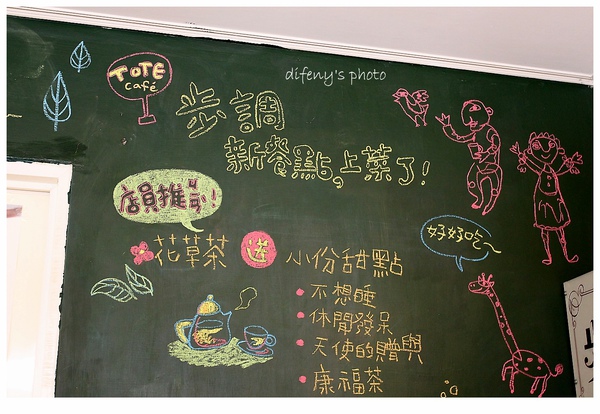 TOTE
café
difeny's photo
步調
新餐點。上菜了!
店員推薦!
花草茶 送 小份甜點
好好吃~
不想睡
休閒發呆
天使的贈與
康福茶